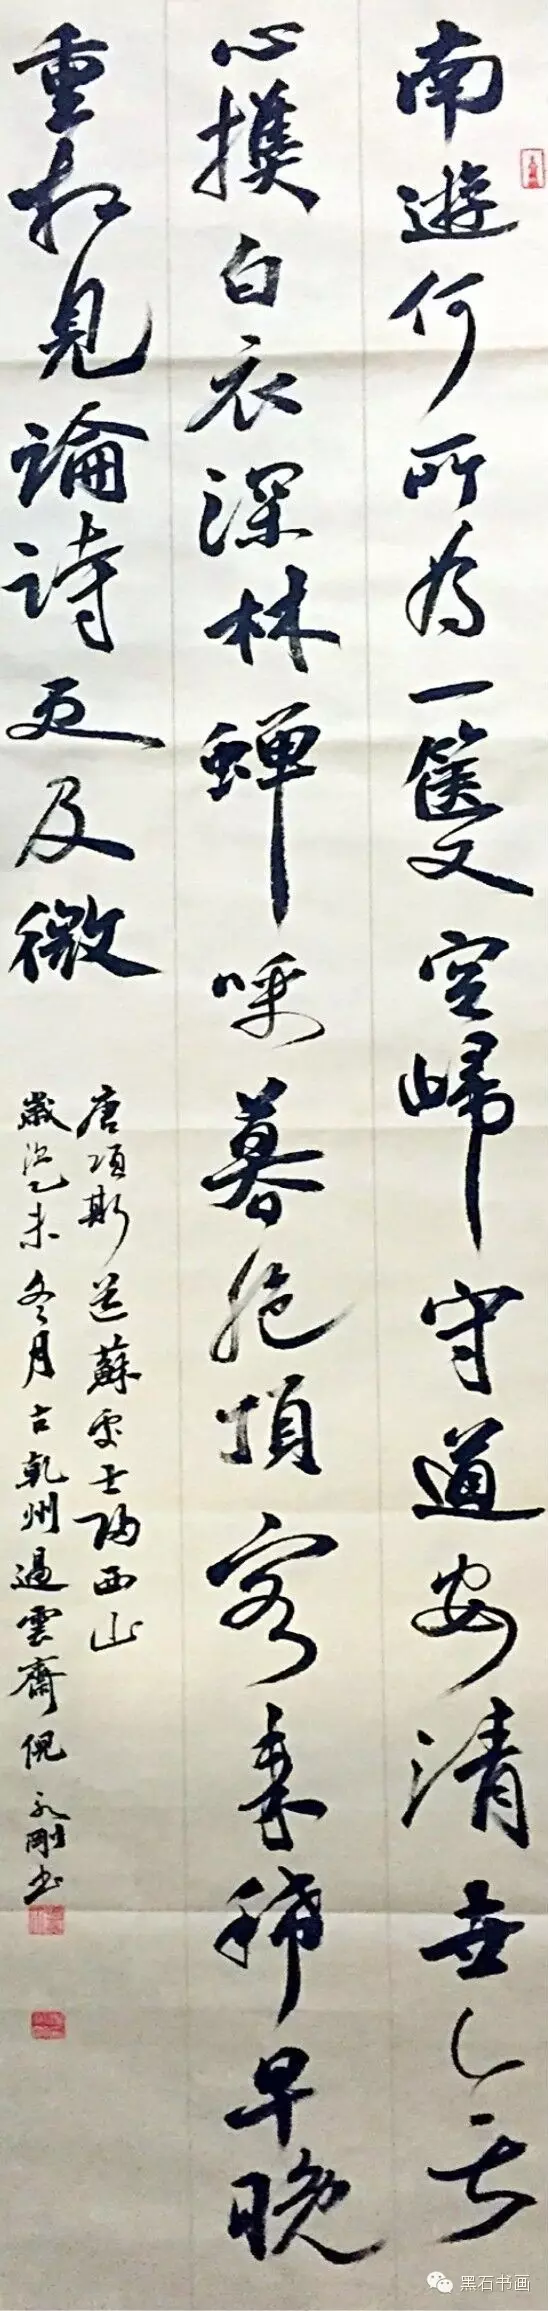 南遊何所为一篋又空歸守道安清世无
心換白衣深林蝉呼暮絶頂客来稀早晚
重相見論詩更及微
唐項斯送蘇處士歸西山
歲次乙未冬月古乾州過雲齋倪永剛书
黑石书画